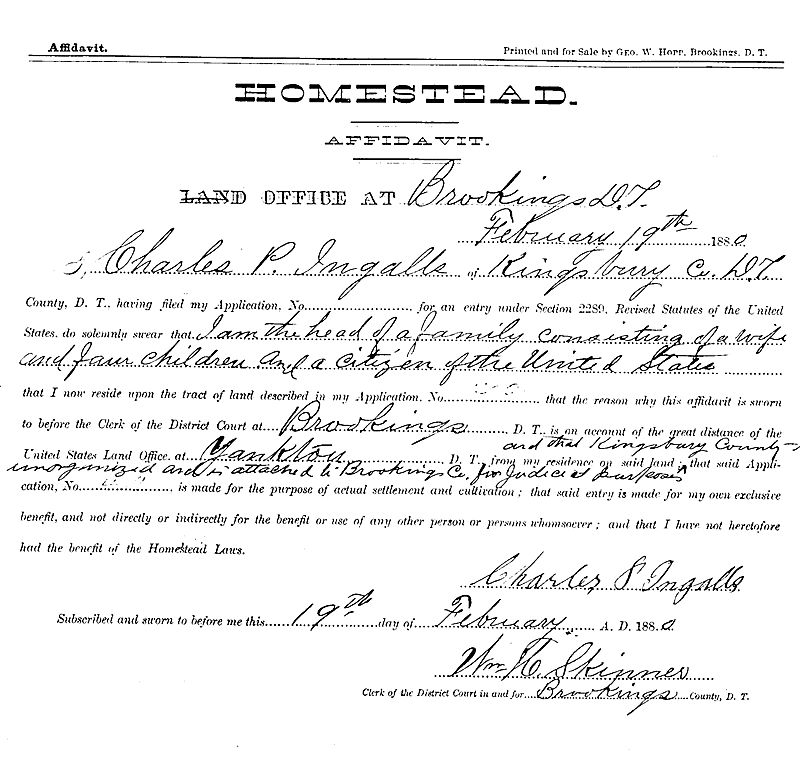 Affidavit.
Printed and for Sale by GEO. W. HOPP, Brookings, D. T.
HOMESTEAD.
AFFIDAVIT.
LAND OFFICE AT Brookings D.T.
February 19th 1880
I, Charles P. Ingalls of Kingsbury Co. D.T.
County, D. T., having filed my Application, No. for an entry under Section 2289, Revised Statutes of the United
States, do solemnly swear that, I am the head of a family consisting of a wife
and four children and a citizen of the United States
that I now reside upon the tract of land described in my Application, No. that the reason why this affidavit is sworn
to before the Clerk of the District Court at Brookings D. T., is on account of the great distance of the
and that Kingsbury County
United States Land Office, at Yankton D. T., from my residence on said land; that said Appli-
unorganized and is attached to Brookings Co. for Judicial Purposes
cation, No. is made for the purpose of actual settlement and cultivation; that said entry is made for my own exclusive
benefit, and not directly or indirectly for the benefit or use of any other person or persons whomsoever; and that I have not heretofore
had the benefit of the Homestead Laws.
Charles P Ingalls
Subscribed and sworn to before me this 19th day of February A. D. 1880.
Wm. H. Skinner
Clerk of the District Court in and for Brookings County, D. T.